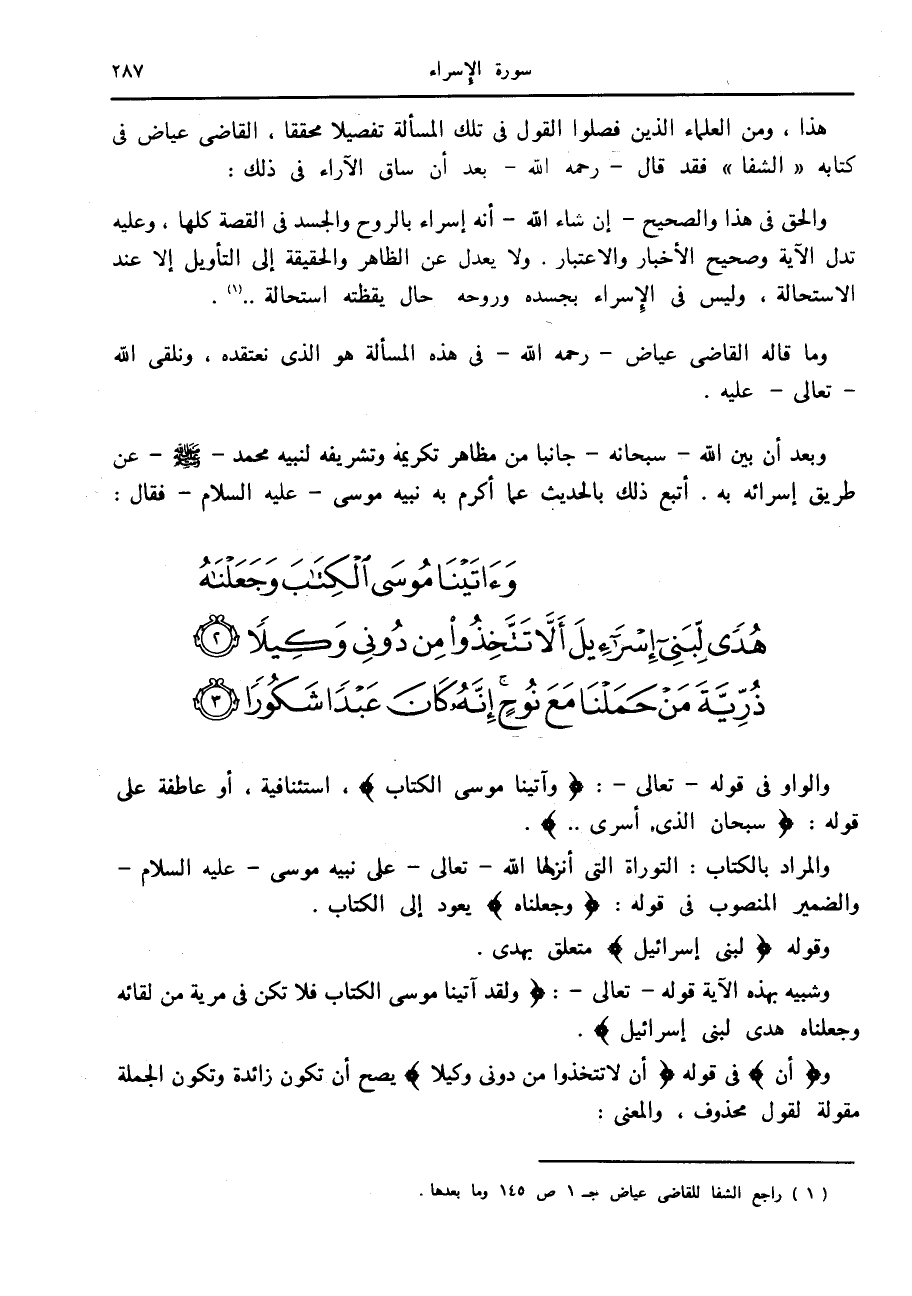 سورة الإسراء ٢٨٧
هذا ، ومن العلماء الذين فصلوا القول فى تلك المسألة تفصيلا محققا ، القاضى عياض فى
كتابه « الشفا » فقد قال – رحمه الله – بعد أن ساق الآراء فى ذلك :
والحق فى هذا والصحيح – إن شاء الله – أنه إسراء بالروح والجسد فى القصة كلها ، وعليه
تدل الآية وصحيح الأخبار والاعتبار . ولا يعدل عن الظاهر والحقيقة إلى التأويل إلا عند
الاستحالة ، وليس فى الإسراء بجسده وروحه حال يقظته استحالة ..(١) .
وما قاله القاضى عياض – رحمه الله – فى هذه المسألة هو الذى نعتقده ، ونلقى الله
– تعالى – عليه .
وبعد أن بين الله – سبحانه – جانبا من مظاهر تكريمه وتشريفه لنبيه محمد – ﷺ – عن
طريق إسرائه به . أتبع ذلك بالحديث عما أكرم به نبيه موسى – عليه السلام – فقال :
وَءَاتَيْنَا مُوسَى ٱلْكِتَٰبَ وَجَعَلْنَٰهُ
هُدًى لِّبَنِىٓ إِسْرَٰٓءِيلَ أَلَّا تَتَّخِذُوا۟ مِن دُونِى وَكِيلًا ٢
ذُرِّيَّةَ مَنْ حَمَلْنَا مَعَ نُوحٍ ۚ إِنَّهُۥ كَانَ عَبْدًا شَكُورًا ٣
والواو فى قوله – تعالى – : ﴿ وآتينا موسى الكتاب ﴾ ، استئنافية ، أو عاطفة على
قوله : ﴿ سبحان الذى أسرى .. ﴾ .
والمراد بالكتاب : التوراة التى أنزلها الله – تعالى – على نبيه موسى – عليه السلام –
والضمير المنصوب فى قوله : ﴿ وجعلناه ﴾ يعود إلى الكتاب .
وقوله ﴿ لبنى إسرائيل ﴾ متعلق بهدى .
وشبيه بهذه الآية قوله – تعالى – : ﴿ ولقد آتينا موسى الكتاب فلا تكن فى مرية من لقائه
وجعلناه هدى لبنى إسرائيل ﴾ .
و﴿ أن ﴾ فى قوله ﴿ أن لاتتخذوا من دونى وكيلا ﴾ يصح أن تكون زائدة وتكون الجملة
مقولة لقول محذوف ، والمعنى :
( ١ ) راجع الشفا للقاضى عياض جـ ١ ص ١٤٥ وما بعدها .